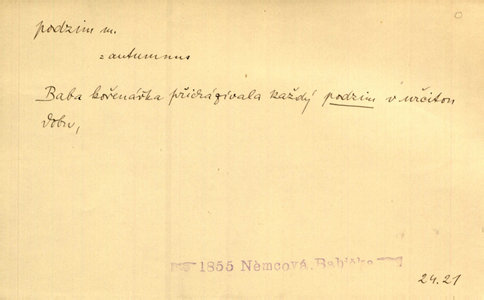 podzim m.
= autumnus
Baba kořenářka přicházívala každý podzim v určitou
dobu,
1855 Němcová, Babička
24.21